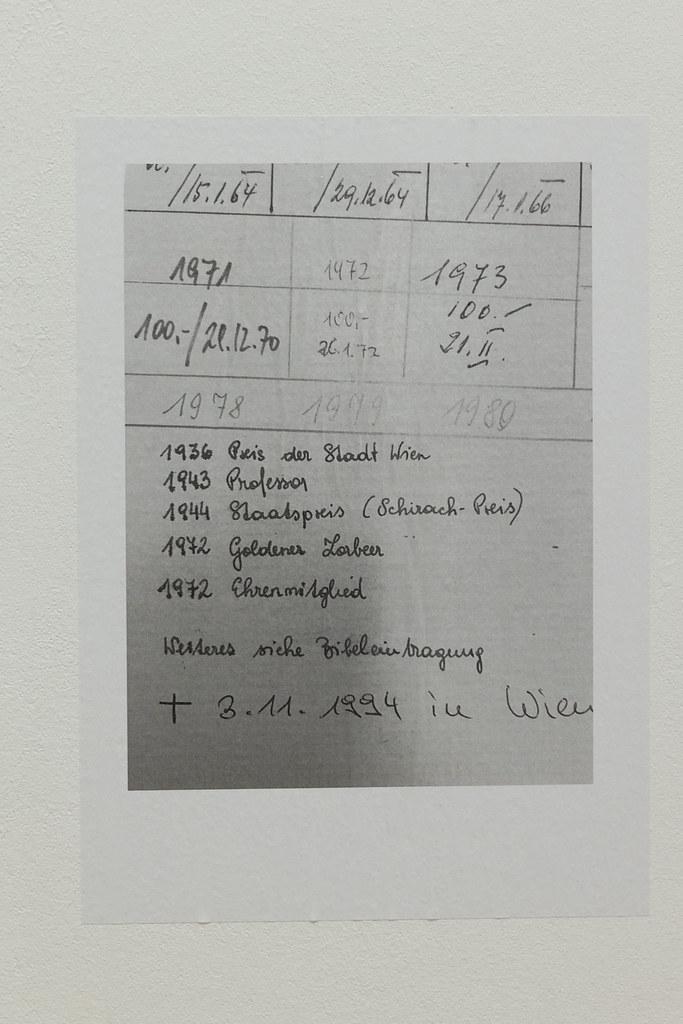 /15.1.64 /29.12.64 /17.1.66
1971 1972 1973
100,-/28.12.70 100,- 100.-
26.1.72 21.II.
1978 1979 1980
1936 Preis der Stadt Wien
1943 Professor
1944 Staatspreis (Schirach-Preis)
1972 Goldener Lorbeer
1972 Ehrenmitglied
Weiteres siehe Bibeleintragung
† 3.11.1994 in Wien